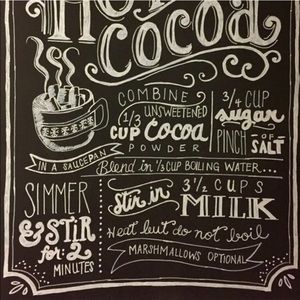 HOT
COCOA
COMBINE
1/3 UNSWEETENED
CUP Cocoa
POWDER
3/4 CUP
sugar
PINCH OF SALT
IN A SAUCEPAN
Blend in 1/3 CUP BOILING WATER...
SIMMER
& STIR
for 2
MINUTES
Stir in 3 1/2 CUPS
MILK
Heat but do not boil
MARSHMALLOWS OPTIONAL